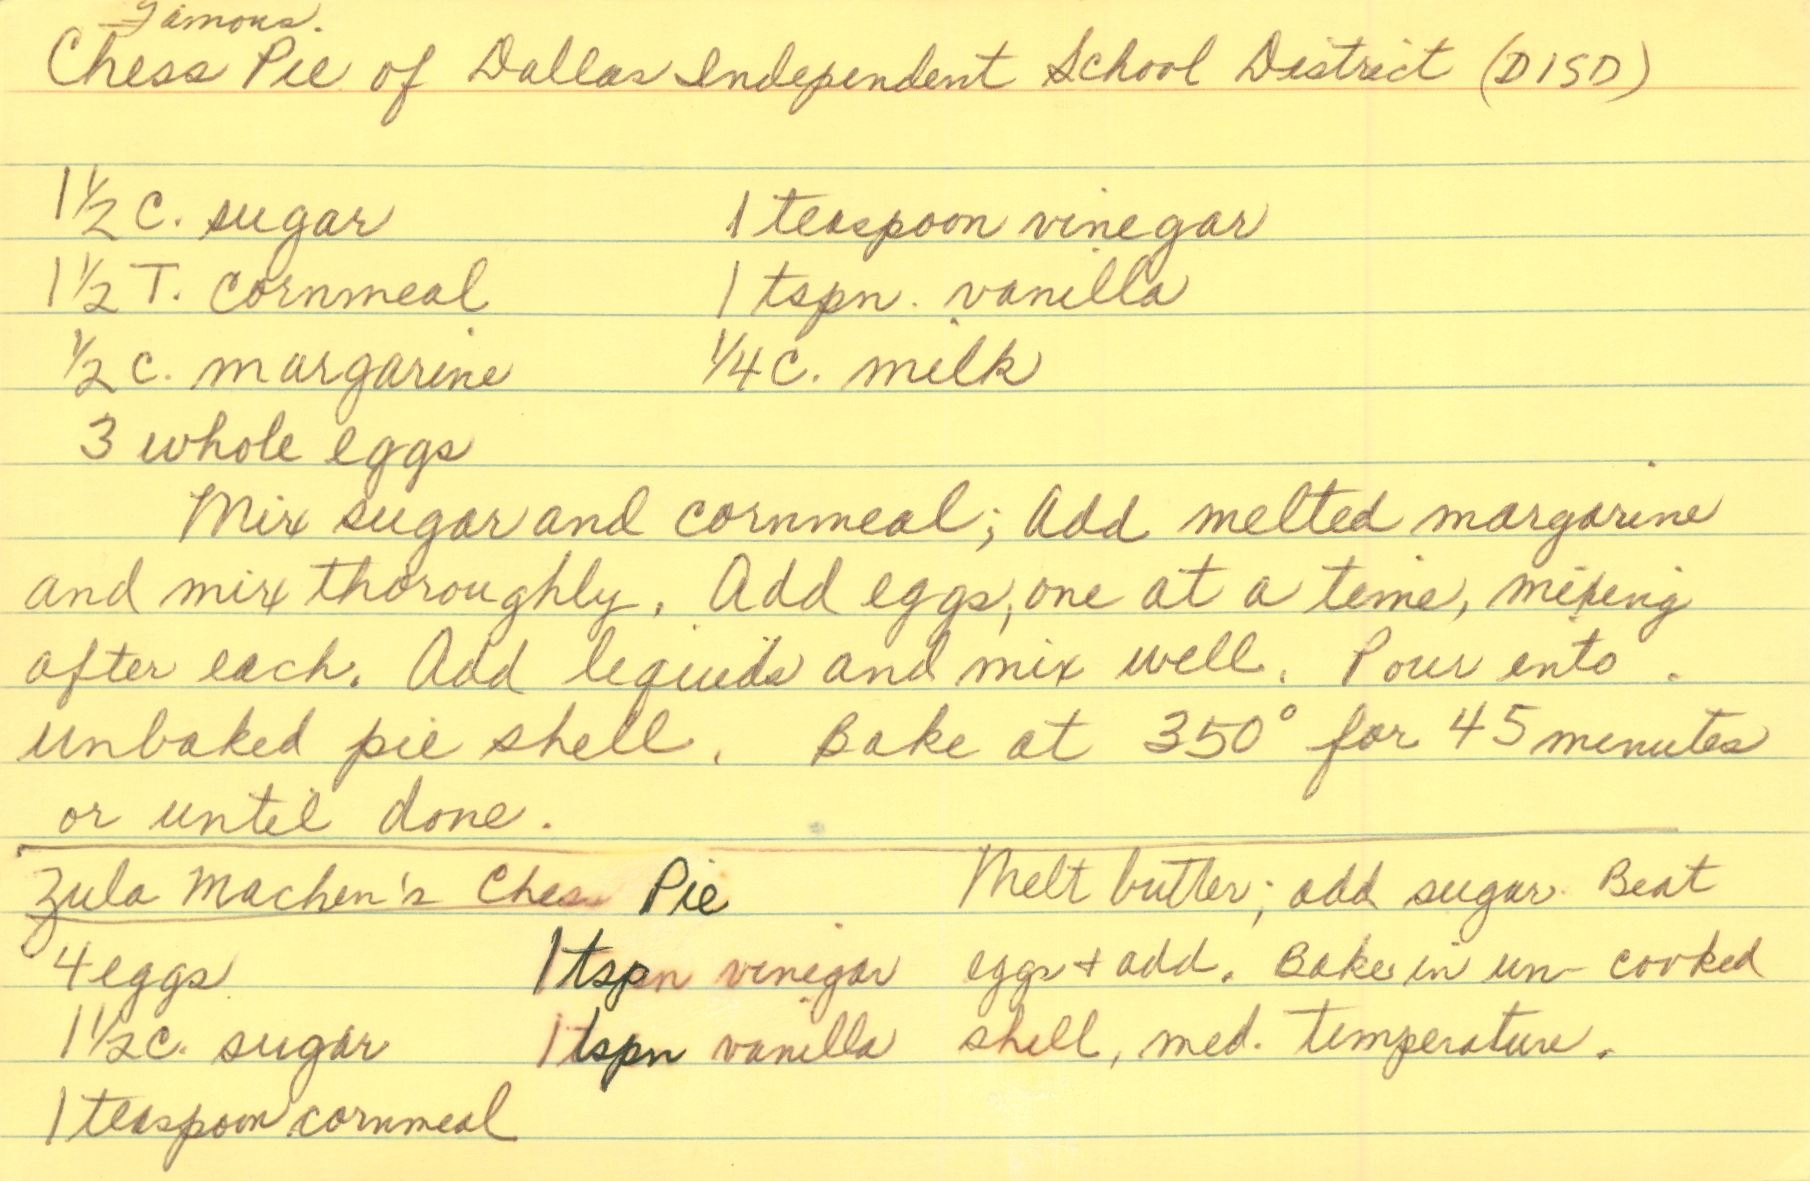 Famous.
Chess Pie of Dallas Independent School District (DISD)
1 1/2 C. sugar
1 teaspoon vinegar
1 1/2 T. cornmeal
1 tspn. vanilla
1/2 c. margarine
1/4 c. milk
3 whole eggs
Mix sugar and cornmeal; Add melted margarine
and mix thoroughly. Add eggs, one at a time, mixing
after each. Add liquids and mix well. Pour into.
unbaked pie shell. Bake at 350° for 45 minutes
or until done.
Zula Machen's Chess Pie
4 eggs
1 1/2 c. sugar
1 teaspoon cornmeal
1 tspn vinegar
1 tspn vanilla
Melt butter; add sugar. Beat
eggs + add. Bake in un-cooked
shell, med. temperature.